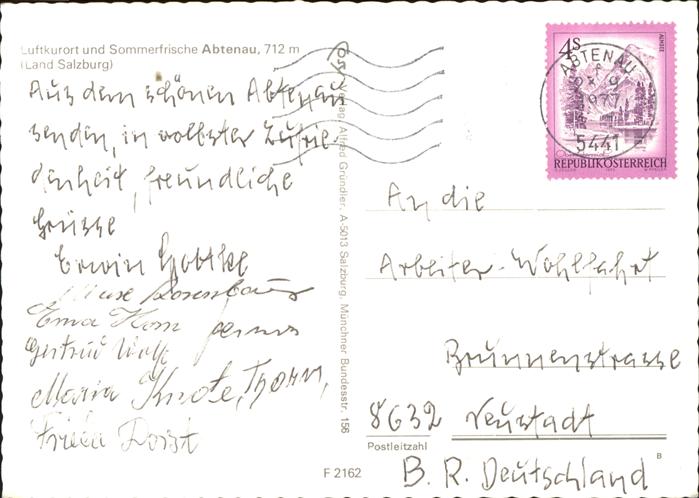 Luftkurort und Sommerfrische Abtenau, 712 m
(Land Salzburg)
Aus dem schönen Abtenau
senden, in vollster Zufrie-
denheit, freundliche
Grüsse
Erwin
Erna Horn
Gertrud Wolf
Maria Knote, Thorn,
Frieda Dorst
Verlag Alfred Gründler, A-5013 Salzburg, Münchner Bundesstr. 156
F 2162
4S
ALMSEE
ABTENAU
1977
5441
REPUBLIK ÖSTERREICH
An die
Arbeiter-Wohlfahrt
Brunnenstrasse
8632 Neustadt
Postleitzahl
B
B. R. Deutschland